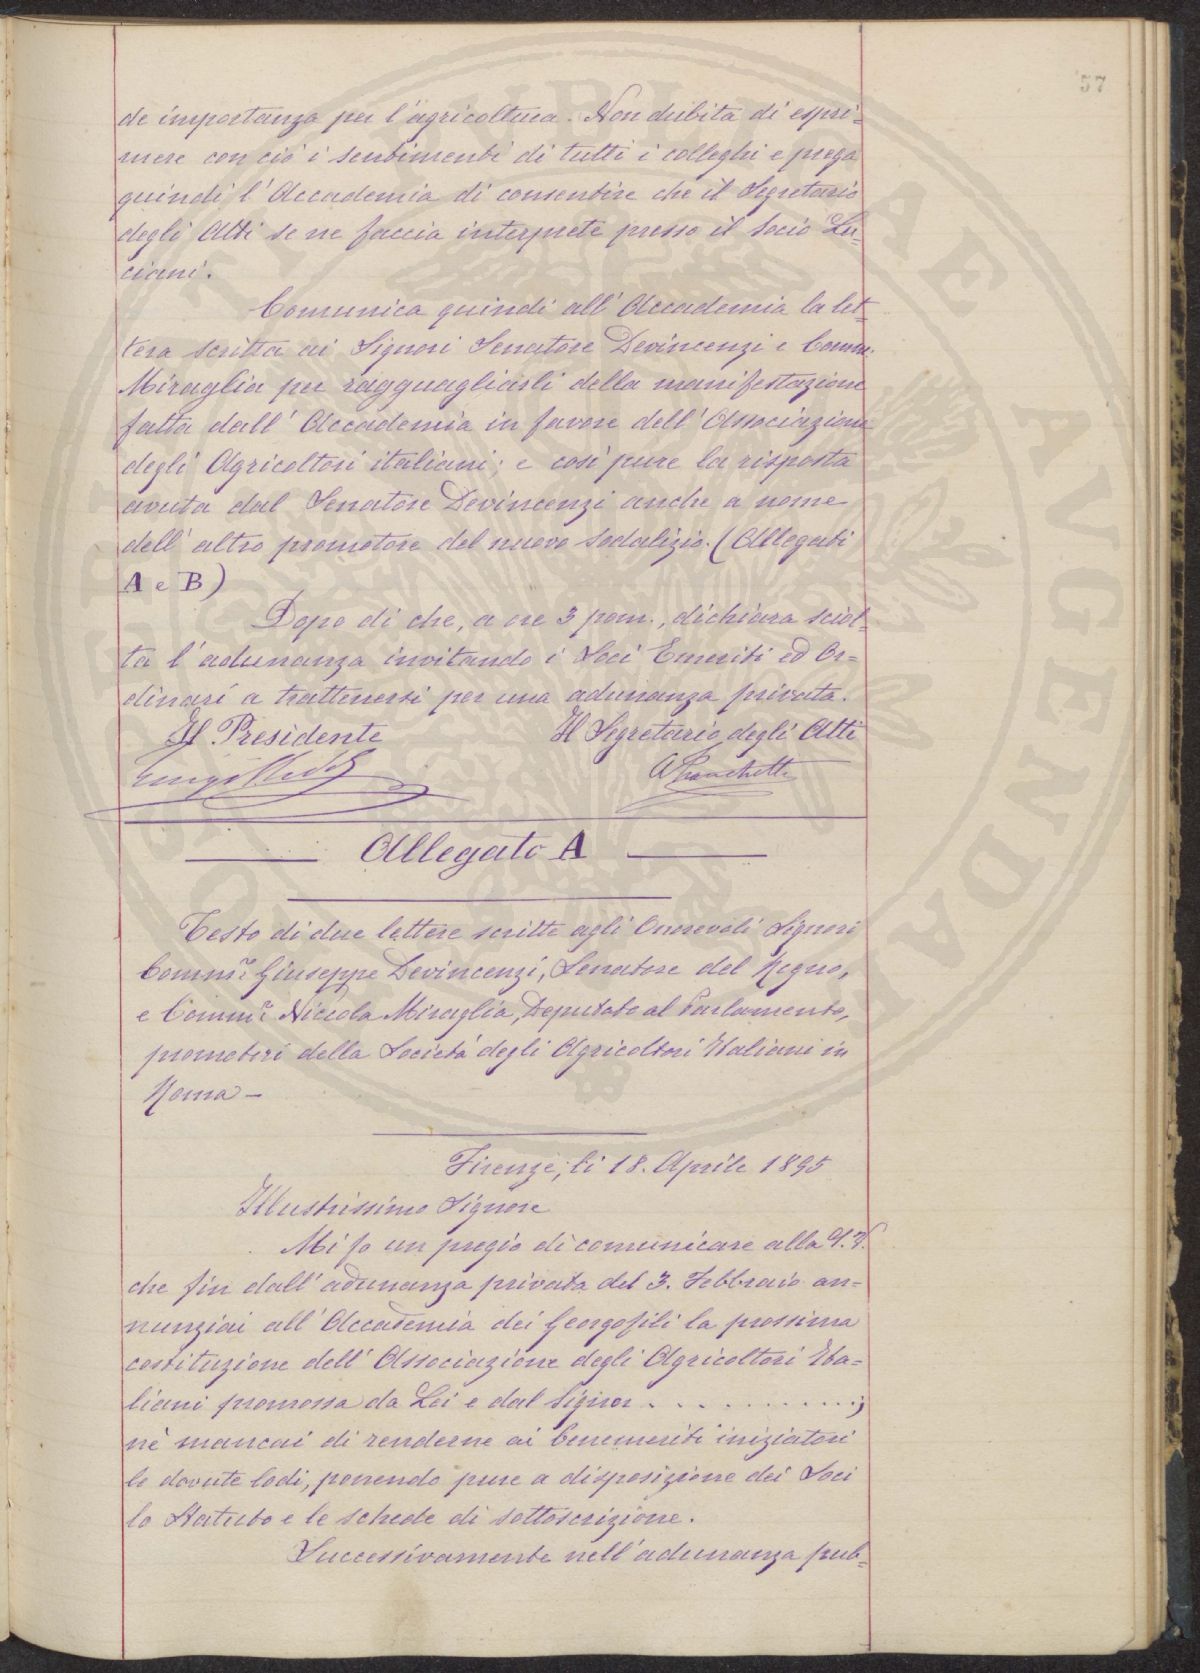 57
de importanza per l'agricoltura. Non dubita di espri=
mere con ciò i sentimenti di tutti i colleghi e prega
quindi l'Accademia di consentire che il Segretario
degli Atti se ne faccia interprete presso il Socio Lu=
ciani.
Comunica quindi all'Accademia la let=
tera scritta ai Signori Senatore Devincenzi e Comm.
Miraglia per ragguagliarli della manifestazione
fatta dall'Accademia in favore dell'Associazione
degli Agricoltori italiani; e così pure la risposta
avuta dal Senatore Devincenzi anche a nome
dell'altro promotore del nuovo sodalizio. (Allegati
A e B)
Dopo di che, a ore 3 pom., dichiara sciol=
ta l'adunanza invitando i Soci Emeriti ed Or=
dinari a trattenersi per una adunanza privata.
Il Presidente Il Segretario degli Atti
Allegato A
Testo di due lettere scritte agli Onorevoli Signori
Comm.re Giuseppe Devincenzi, Senatore del Regno,
e Comm.re Niccola Miraglia, Deputato al Parlamento,
promotori della Società degli Agricoltori Italiani in
Roma –
Firenze, li 18. Aprile 1895
Illustrissimo Signore
Mi fo un pregio di comunicare alla S. V.
che fin dall'adunanza privata del 3. Febbraio an=
nunziai all'Accademia dei Georgofili la prossima
costituzione dell'Associazione degli Agricoltori Ita=
liani promossa da Lei e dal Signor . . . . . . . . . . . ;
nè mancai di renderne ai benemeriti iniziatori
le dovute lodi, ponendo pure a disposizione dei Soci
lo Statuto e le schede di sottoscrizione.
Successivamente nell'adunanza pub=